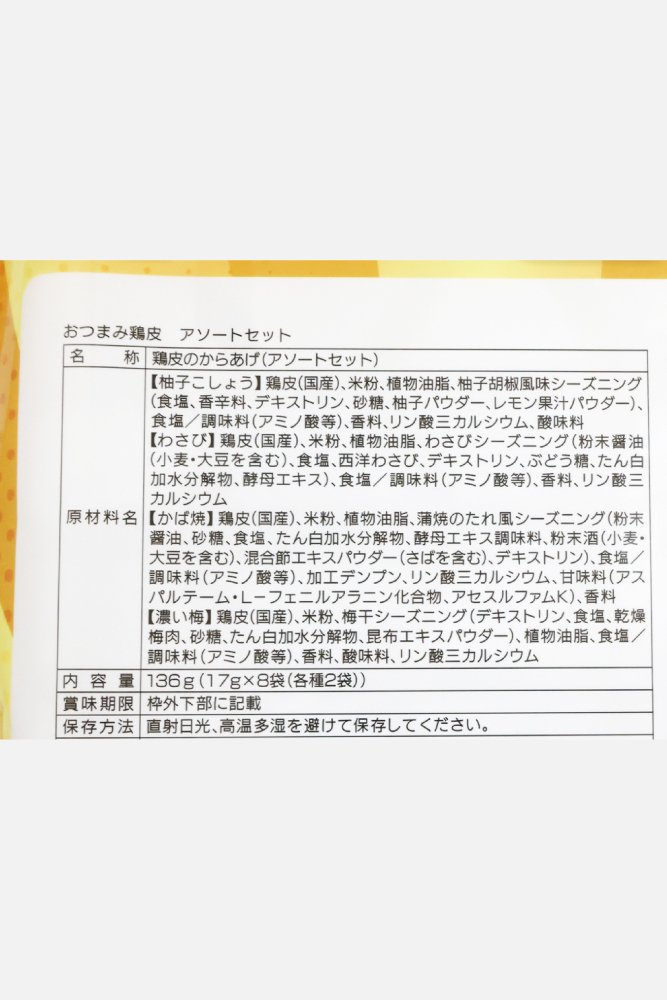 おつまみ鶏皮　アソートセット
名　称 鶏皮のからあげ(アソートセット)
【柚子こしょう】鶏皮(国産)、米粉、植物油脂、柚子胡椒風味シーズニング
(食塩、香辛料、デキストリン、砂糖、柚子パウダー、レモン果汁パウダー)、
食塩／調味料(アミノ酸等)、香料、リン酸三カルシウム、酸味料
【わさび】鶏皮(国産)、米粉、植物油脂、わさびシーズニング(粉末醤油
(小麦・大豆を含む)、食塩、西洋わさび、デキストリン、ぶどう糖、たん白
加水分解物、酵母エキス)、食塩／調味料(アミノ酸等)、香料、リン酸三
カルシウム
原材料名 【かば焼】鶏皮(国産)、米粉、植物油脂、蒲焼のたれ風シーズニング(粉末
醤油、砂糖、食塩、たん白加水分解物、酵母エキス調味料、粉末酒(小麦・
大豆を含む)、混合節エキスパウダー(さばを含む)、デキストリン)、食塩／
調味料(アミノ酸等)、加工デンプン、リン酸三カルシウム、甘味料(アス
パルテーム・L−フェニルアラニン化合物、アセスルファムK)、香料
【濃い梅】鶏皮(国産)、米粉、梅干シーズニング(デキストリン、食塩、乾燥
梅肉、砂糖、たん白加水分解物、昆布エキスパウダー)、植物油脂、食塩／
調味料(アミノ酸等)、香料、酸味料、リン酸三カルシウム
内容量 136g(17g×8袋(各種2袋))
賞味期限 枠外下部に記載
保存方法 直射日光、高温多湿を避けて保存してください。